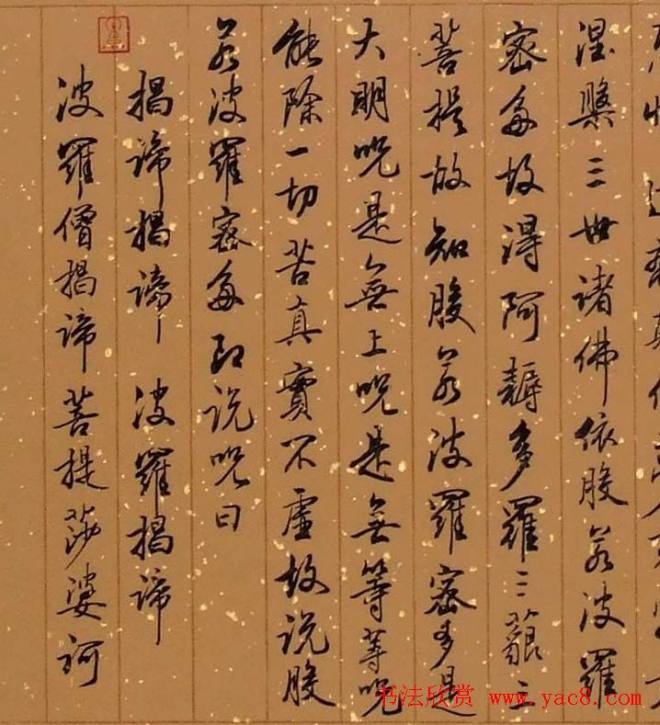 涅槃三世諸佛依般若波羅
密多故得阿耨多羅三藐三
菩提故知般若波羅密多是
大明咒是無上咒是無等等咒
能除一切苦真實不虛故説般
若波羅密多即説咒曰
揭諦揭諦 波羅揭諦
波羅僧揭諦菩提莎婆訶
书法欣赏 www.yac8.com